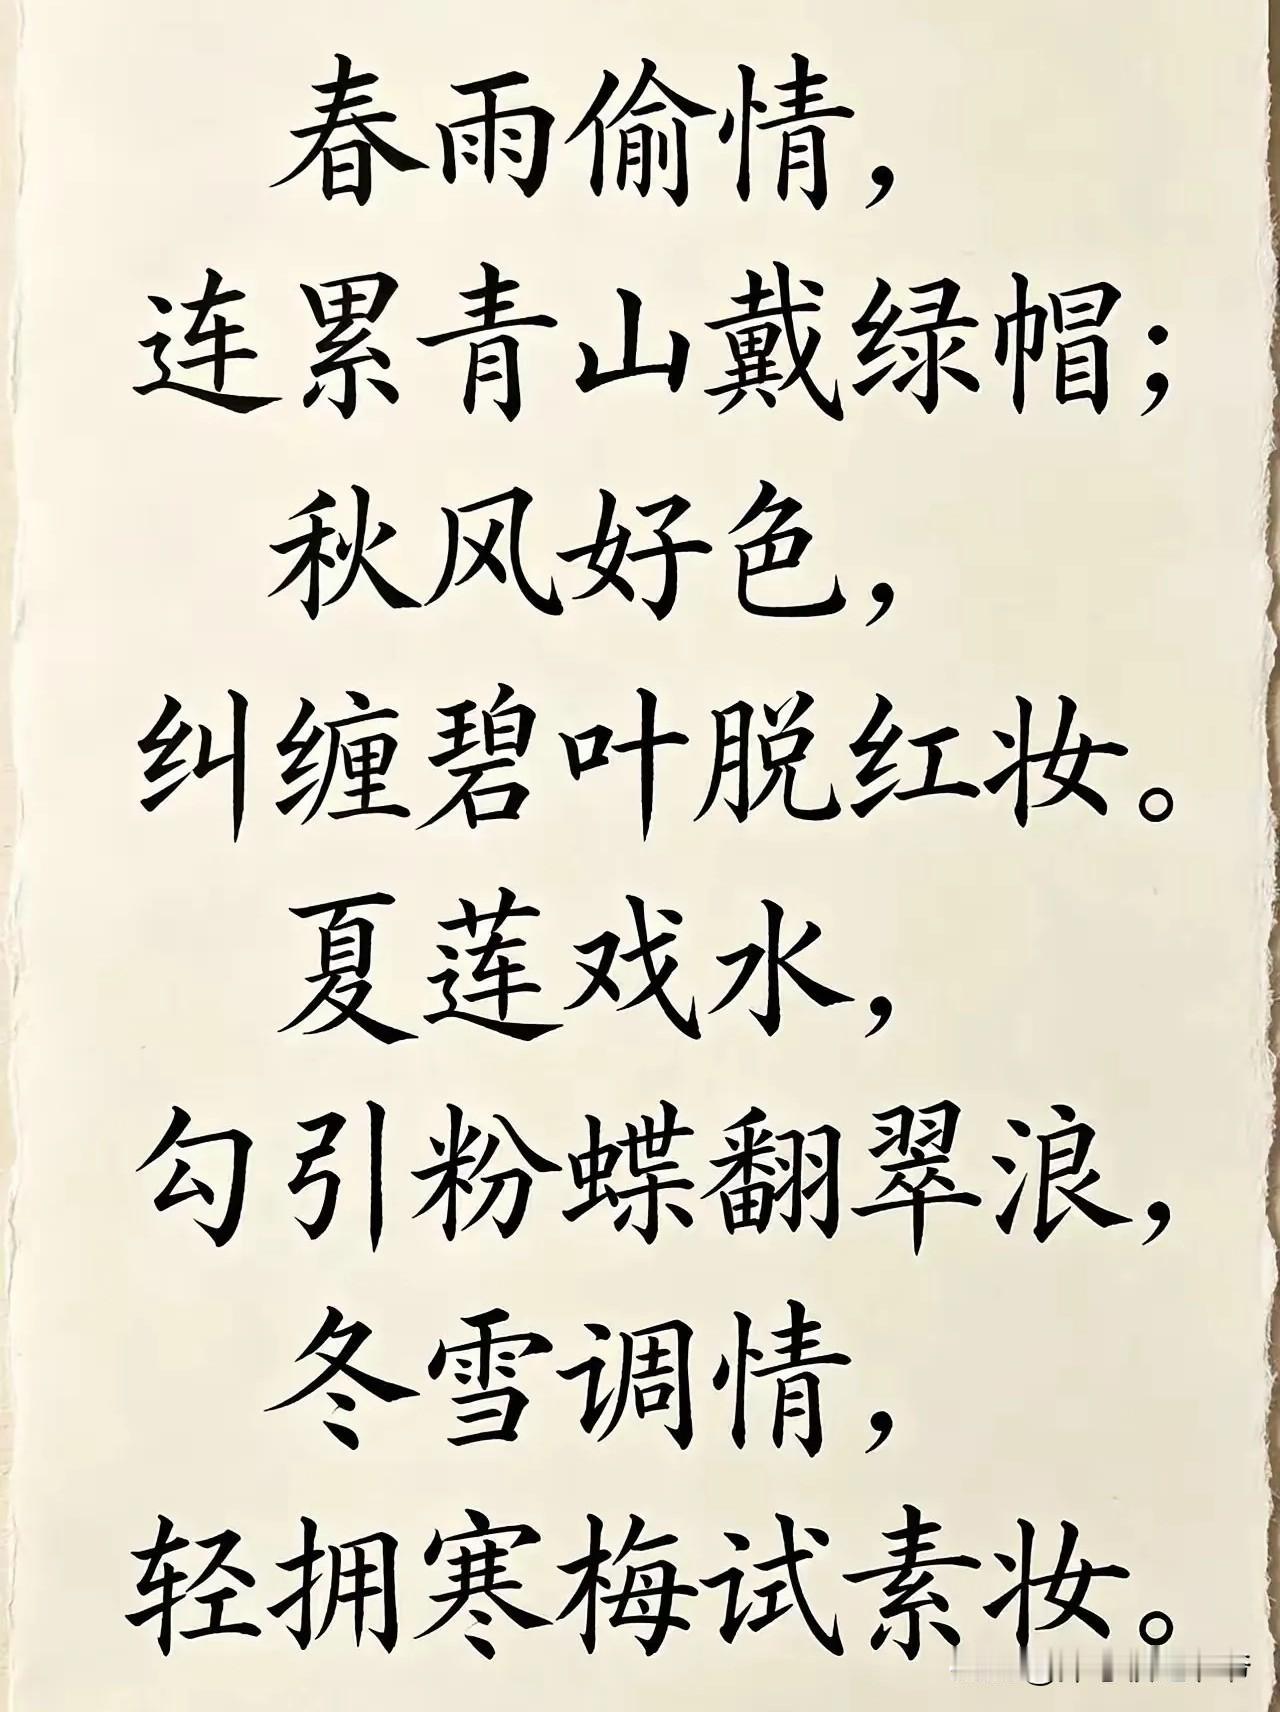 春雨偷情，
连累青山戴绿帽；
秋风好色，
纠缠碧叶脱红妆。
夏莲戏水，
勾引粉蝶翻翠浪，
冬雪调情，
轻拥寒梅试素妆。